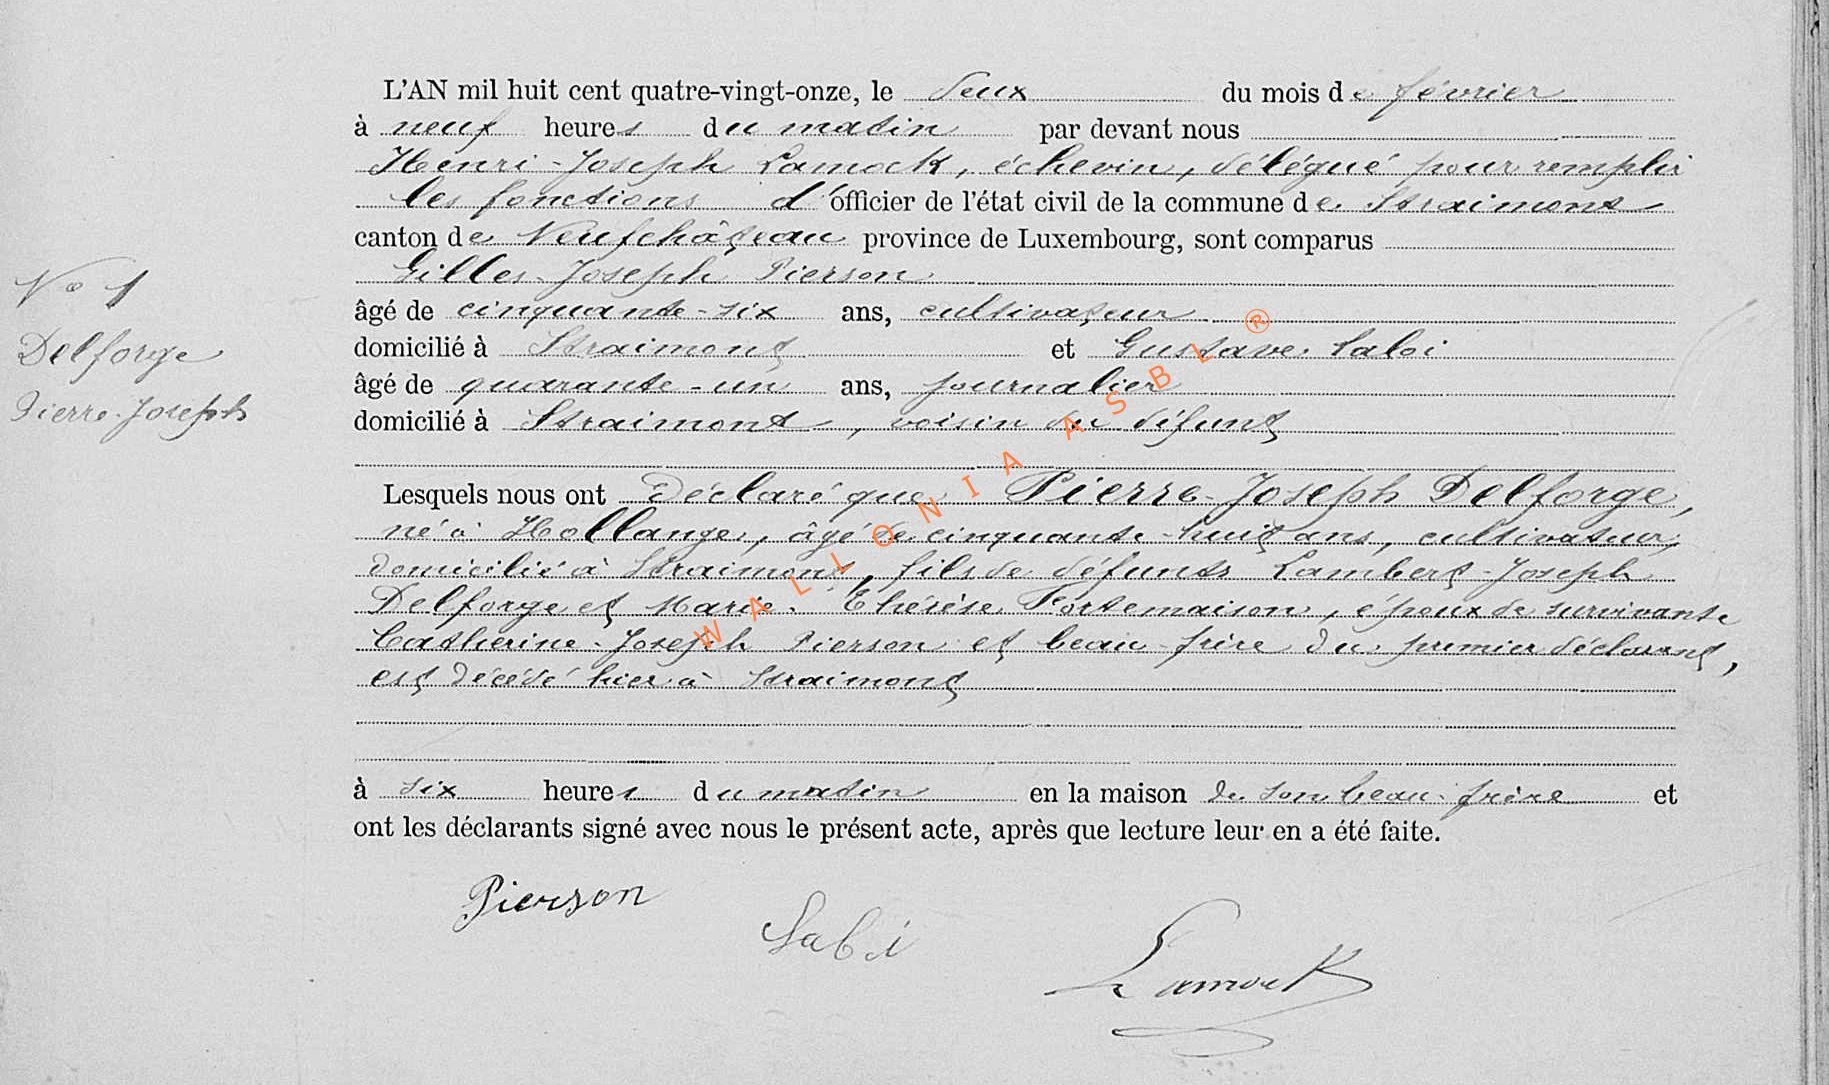 L'AN mil huit cent quatre-vingt-onze, le deux du mois de février
à neuf heures du matin par devant nous
Henri-Joseph Lamock, échevin, délégué pour remplir
les fonctions d'officier de l'état civil de la commune de Straimont
canton de Neufchâteau province de Luxembourg, sont comparus
Gilles-Joseph Pierson
âgé de cinquante-six ans, cultivateur
domicilié à Straimont et Gustave
âgé de quarante-un ans, journalier
domicilié à Straimont, voisin du défunt
Lesquels nous ont déclaré que Pierre-Joseph Delforge,
né à Hollange, âgé de cinquante-huit ans, cultivateur,
domicilié à Straimont, fils de défunts Lambert-Joseph
Delforge et Marie-Thérèse Fortemaison, époux de survivante
Catherine-Joseph Pierson et beau-frère du premier déclarant,
est décédé hier à Straimont
à six heures du matin en la maison de son beau-frère et
ont les déclarants signé avec nous le présent acte, après que lecture leur en a été faite.
N° 1
Delforge
Pierre-Joseph
Pierson
Lamock
WALLONIA ASBL ®